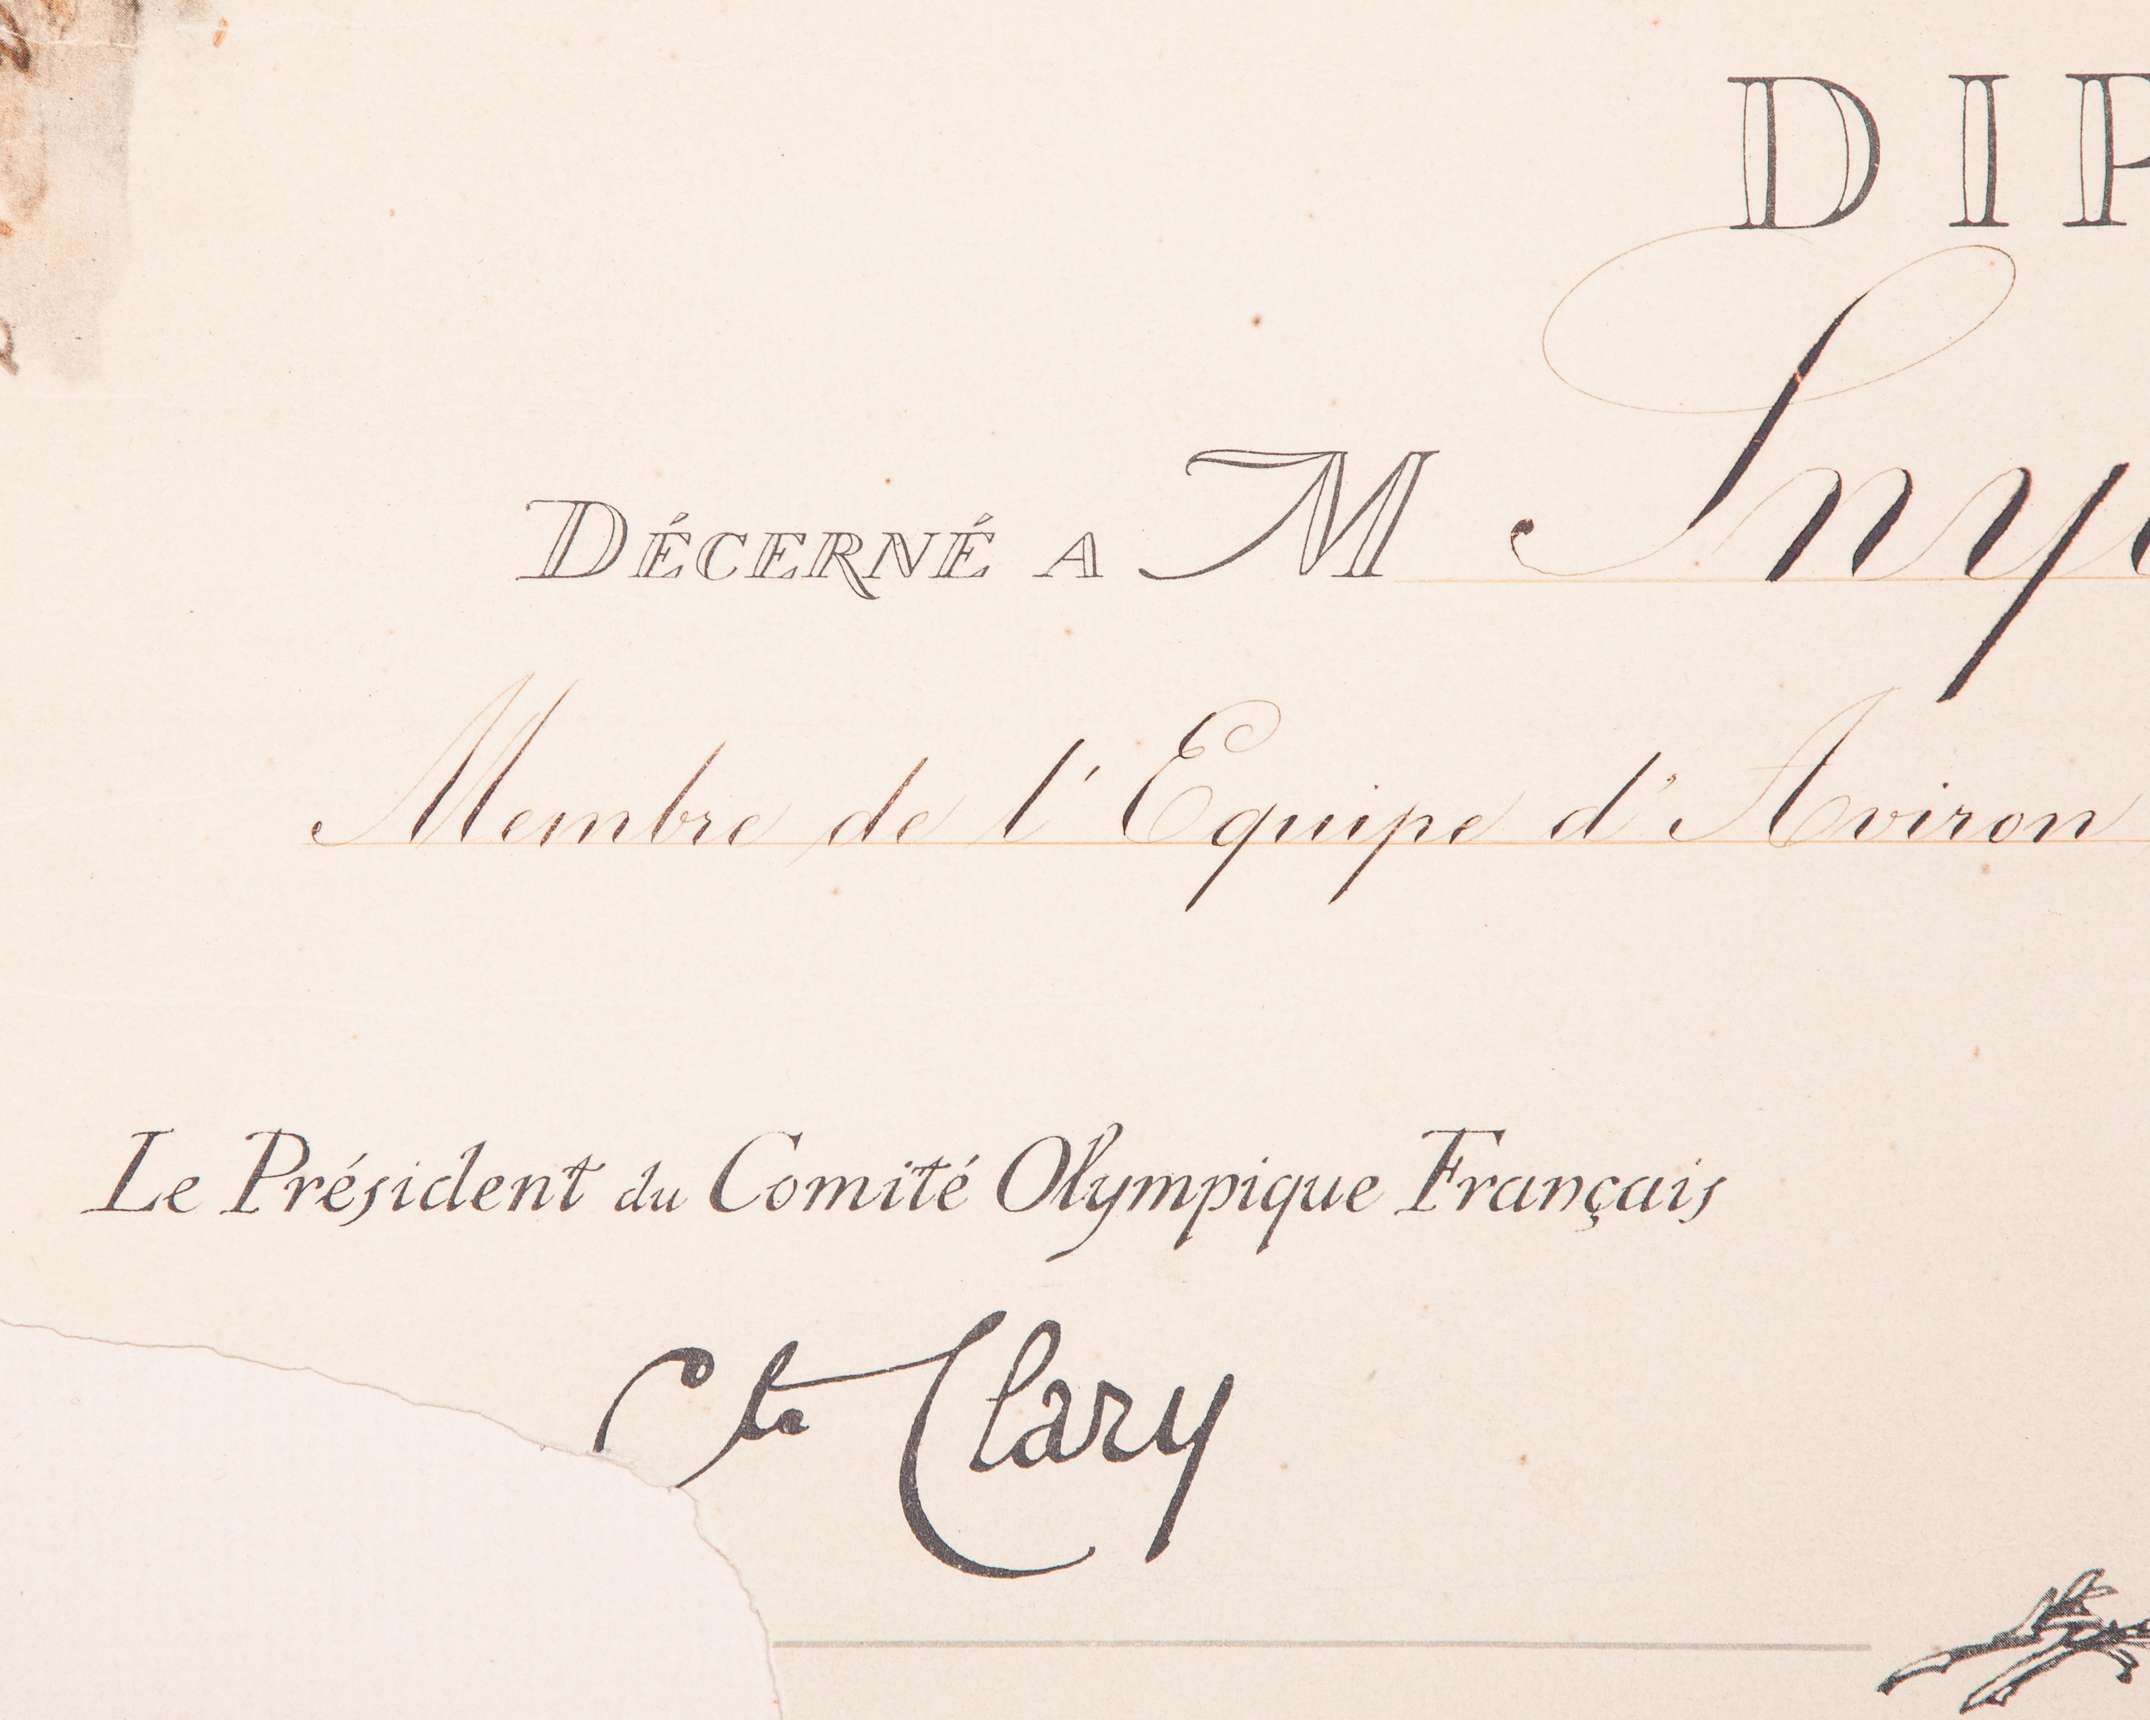 DIP
DÉCERNÉ A M Snyd
Membre de l'Equipe d'Aviron
Le Président du Comité Olympique Français
Cte Clary